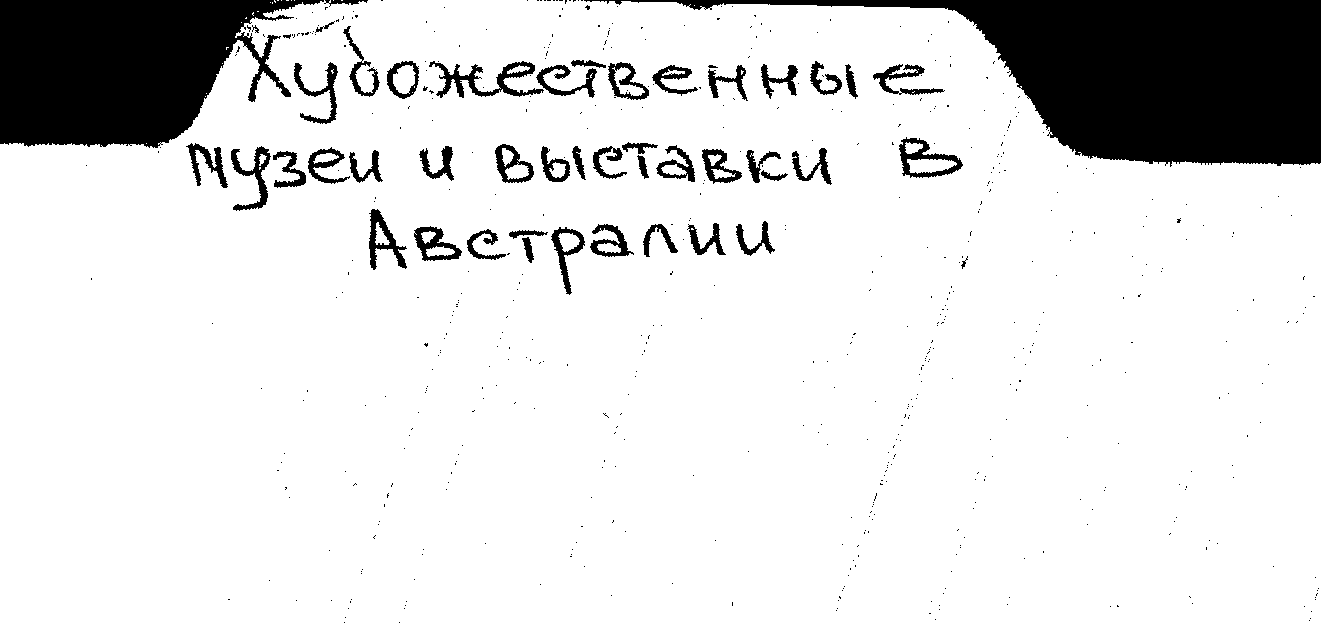 Художественные
музеи и выставки в
Австралии